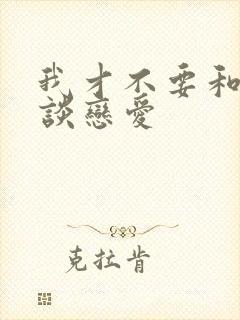 我才不要和
談戀愛
克拉肯